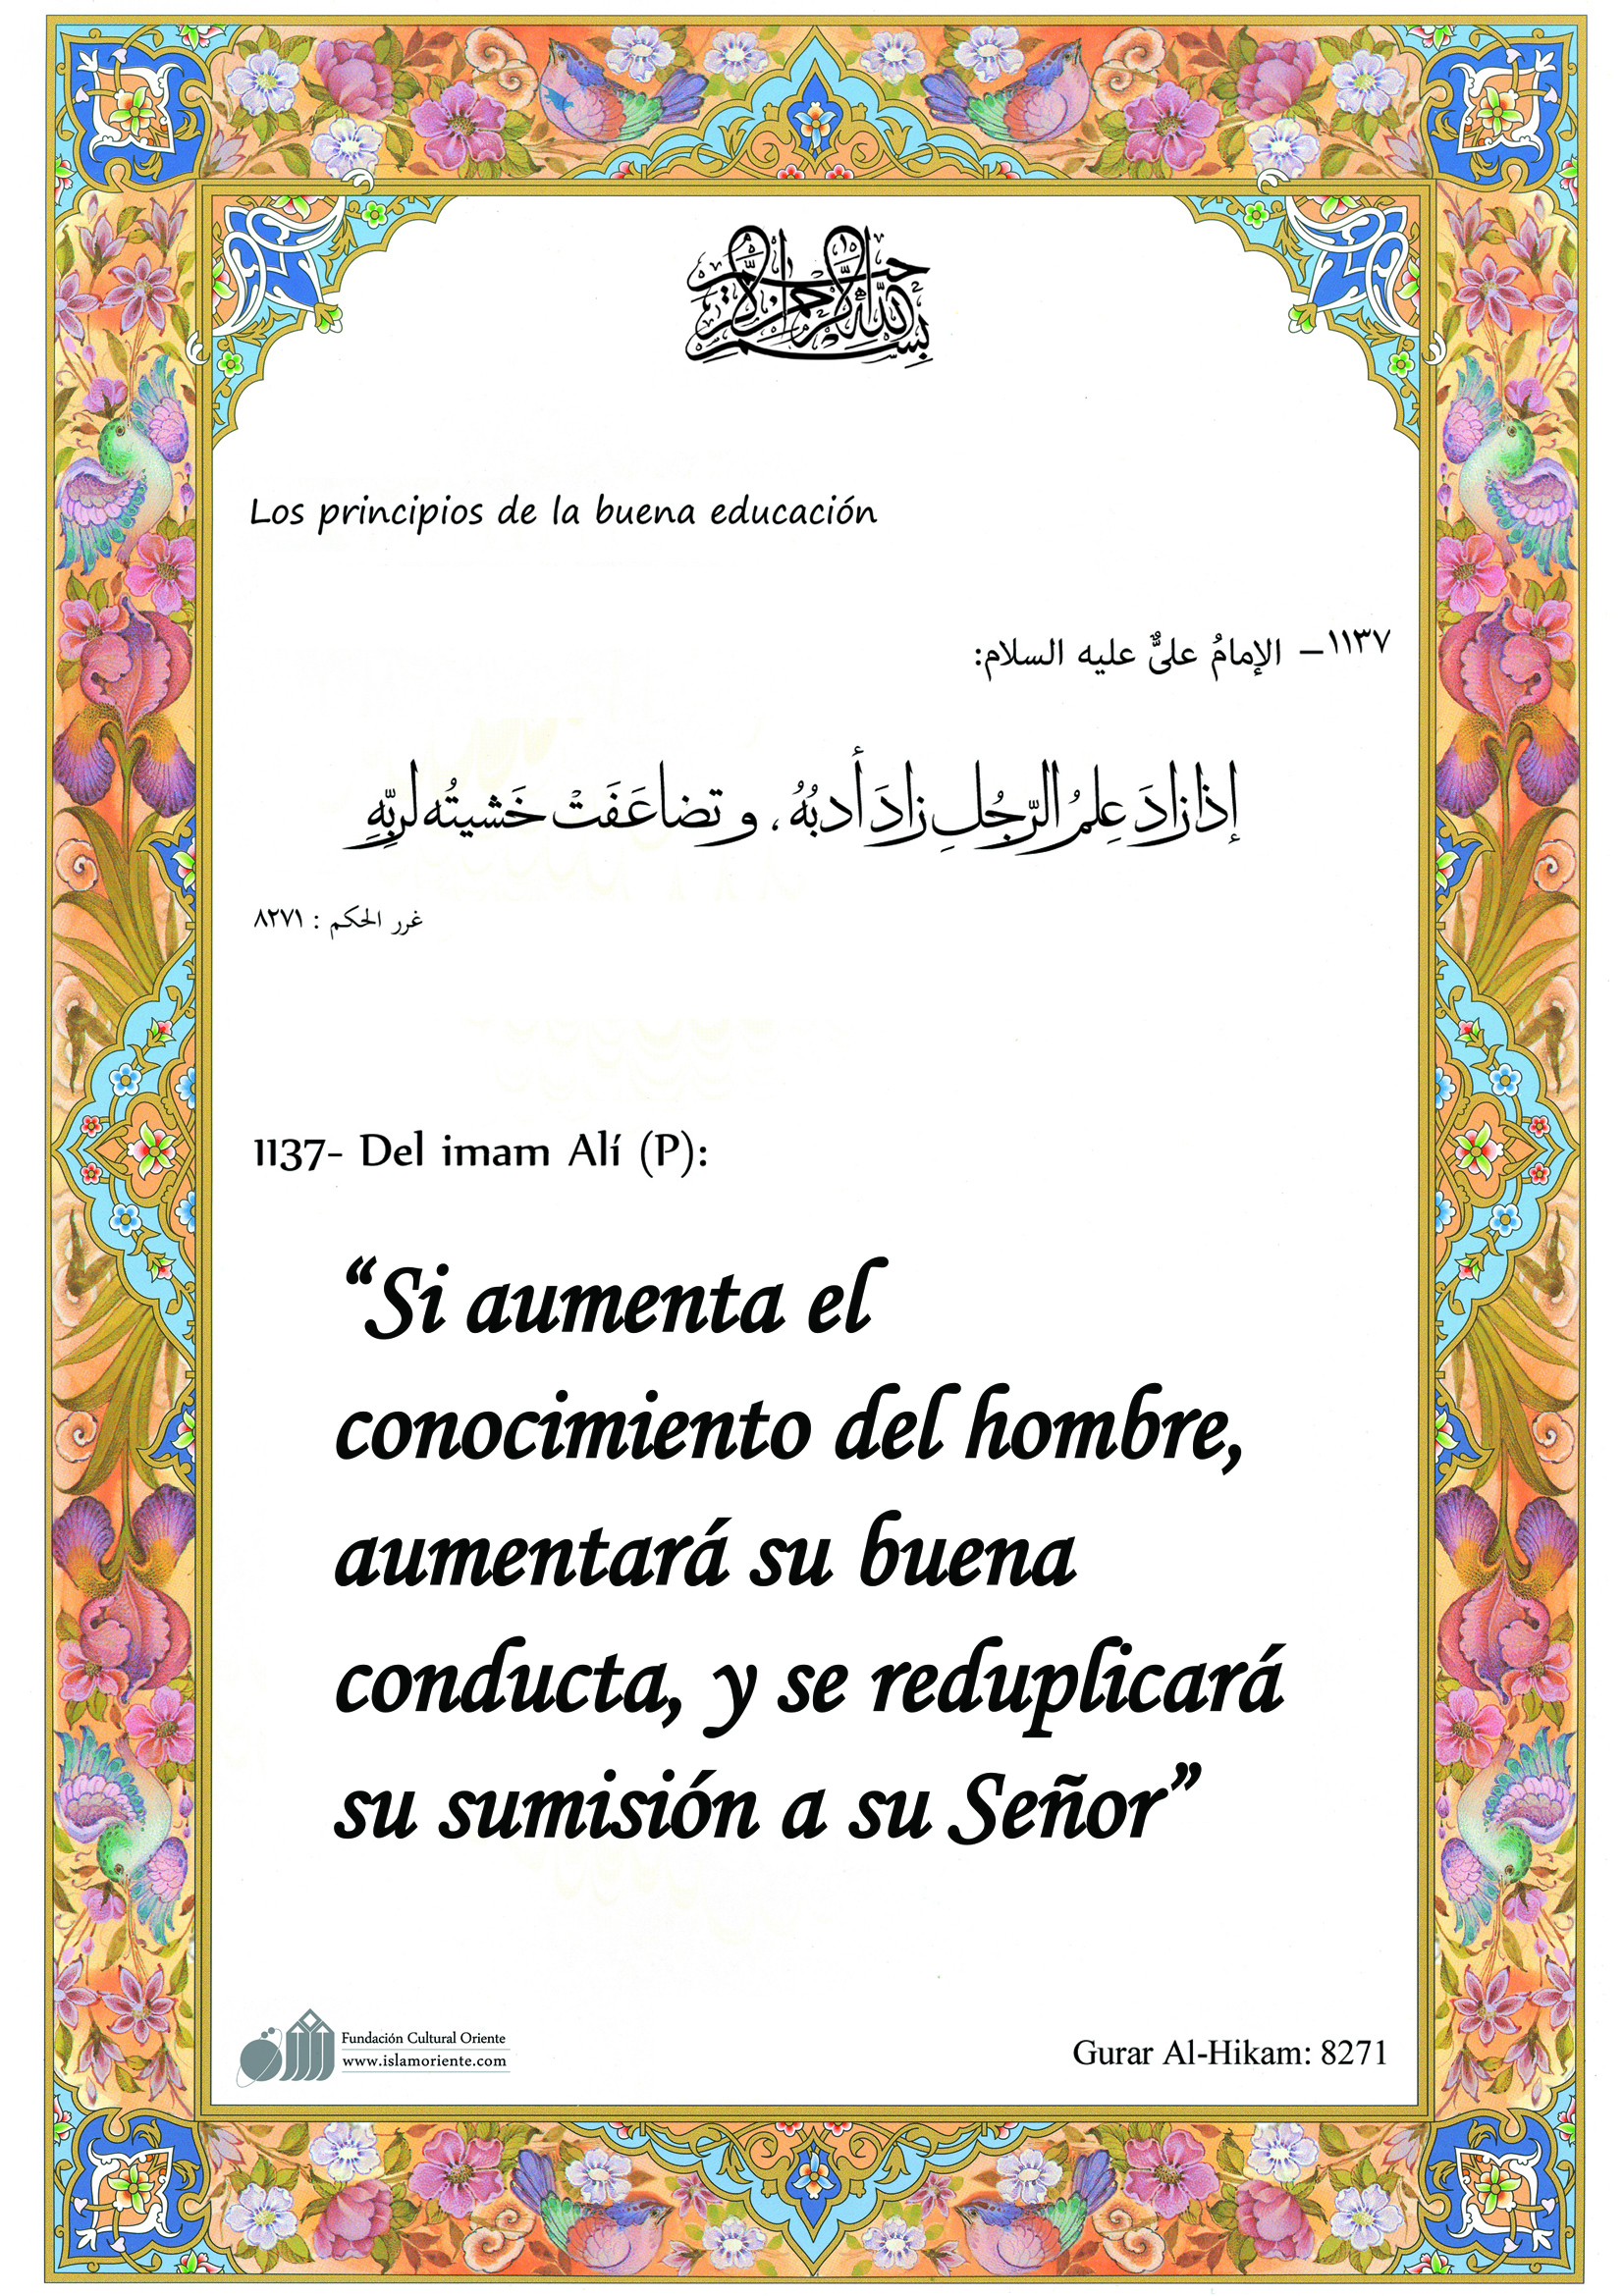 بسم الله الرحمن الرحيم
Los principios de la buena educación
١١٣٧– الإمامُ علىٌّ عليه السلام:
إذا زادَ عِلمُ الرّجُلِ زادَ أدبُهُ، و تضاعَفَتْ خَشيتُه لربِّهِ
غرر الحكم : ٨٢٧١
1137- Del imam Alí (P):
“Si aumenta el
conocimiento del hombre,
aumentará su buena
conducta, y se reduplicará
su sumisión a su Señor”
Fundación Cultural Oriente
www.islamoriente.com
Gurar Al-Hikam: 8271